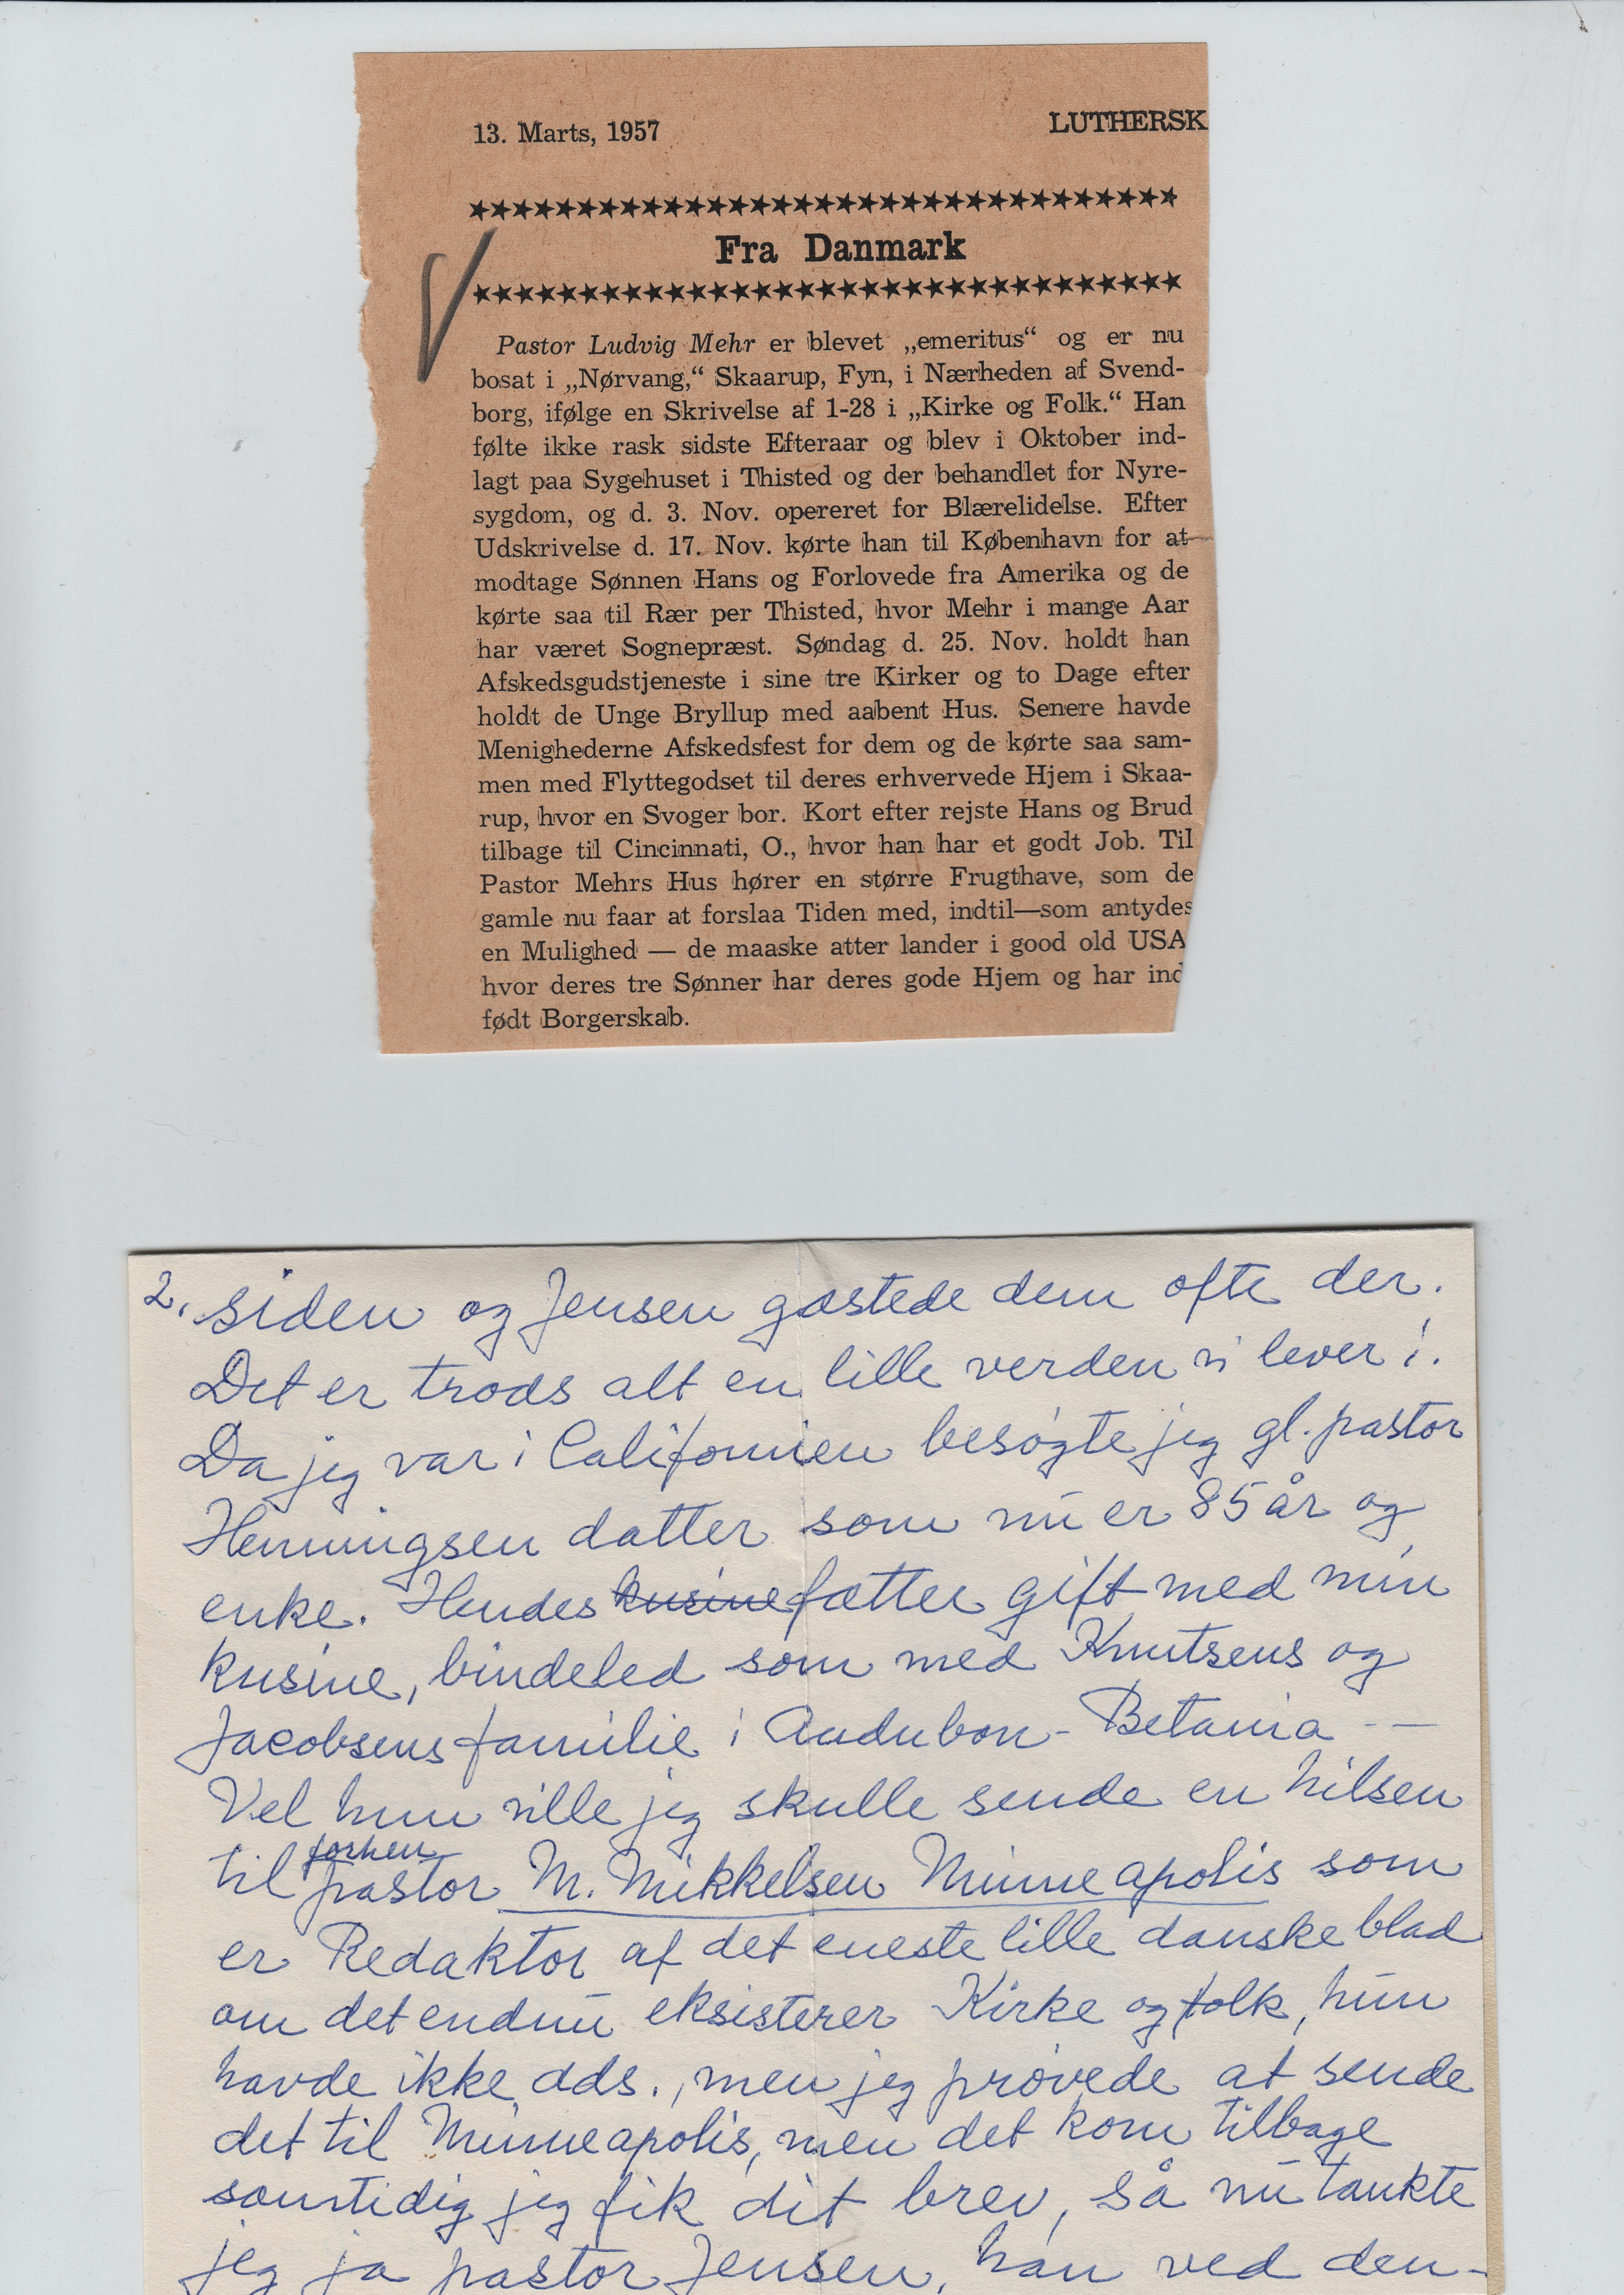 13. Marts, 1957 LUTHERSK
★★★★★★★★★★★★★★★★★★★★★★★★★★★★★★★★★
Fra Danmark
★★★★★★★★★★★★★★★★★★★★★★★★★★★★★★★★★
Pastor Ludvig Mehr er blevet „emeritus“ og er nu
bosat i „Nørvang,“ Skaarup, Fyn, i Nærheden af Svend-
borg, ifølge en Skrivelse af 1-28 i „Kirke og Folk.“ Han
følte ikke rask sidste Efteraar og blev i Oktober ind-
lagt paa Sygehuset i Thisted og der behandlet for Nyre-
sygdom, og d. 3. Nov. opereret for Blærelidelse. Efter
Udskrivelse d. 17. Nov. kørte han til København for at
modtage Sønnen Hans og Forlovede fra Amerika og de
kørte saa til Rær per Thisted, hvor Mehr i mange Aar
har været Sognepræst. Søndag d. 25. Nov. holdt han
Afskedsgudstjeneste i sine tre Kirker og to Dage efter
holdt de Unge Bryllup med aabent Hus. Senere havde
Menighederne Afskedsfest for dem og de kørte saa sam-
men med Flyttegodset til deres erhvervede Hjem i Skaa-
rup, hvor en Svoger bor. Kort efter rejste Hans og Brud
tilbage til Cincinnati, O., hvor han har et godt Job. Til
Pastor Mehrs Hus hører en større Frugthave, som de
gamle nu faar at forslaa Tiden med, indtil—som antydes
en Mulighed — de maaske atter lander i good old USA
hvor deres tre Sønner har deres gode Hjem og har ind
født Borgerskab.
2. siden og Jensen gæstede dem ofte der.
Det er trods alt en lille verden vi lever i.
Da jeg var i Californien besøgte jeg gl. pastor
Henningsen datter som nu er 85 år og
enke. Hendes kusine fætter gift med min
kusine, bindeled som med Knutsens og
Jacobsens familie i Audubon - Betania --
Vel hun ville jeg skulle sende en hilsen
til forhen pastor M. Mikkelsen Minneapolis som
er Redaktor af det eneste lille danske blad
om det endnu eksisterer Kirke og folk, hun
havde ikke ads., men jeg prøvede at sende
det til Minneapolis, men det kom tilbage
samtidig jeg fik dit brev, så nu tænkte
jeg ja pastor Jensen, han ved den-